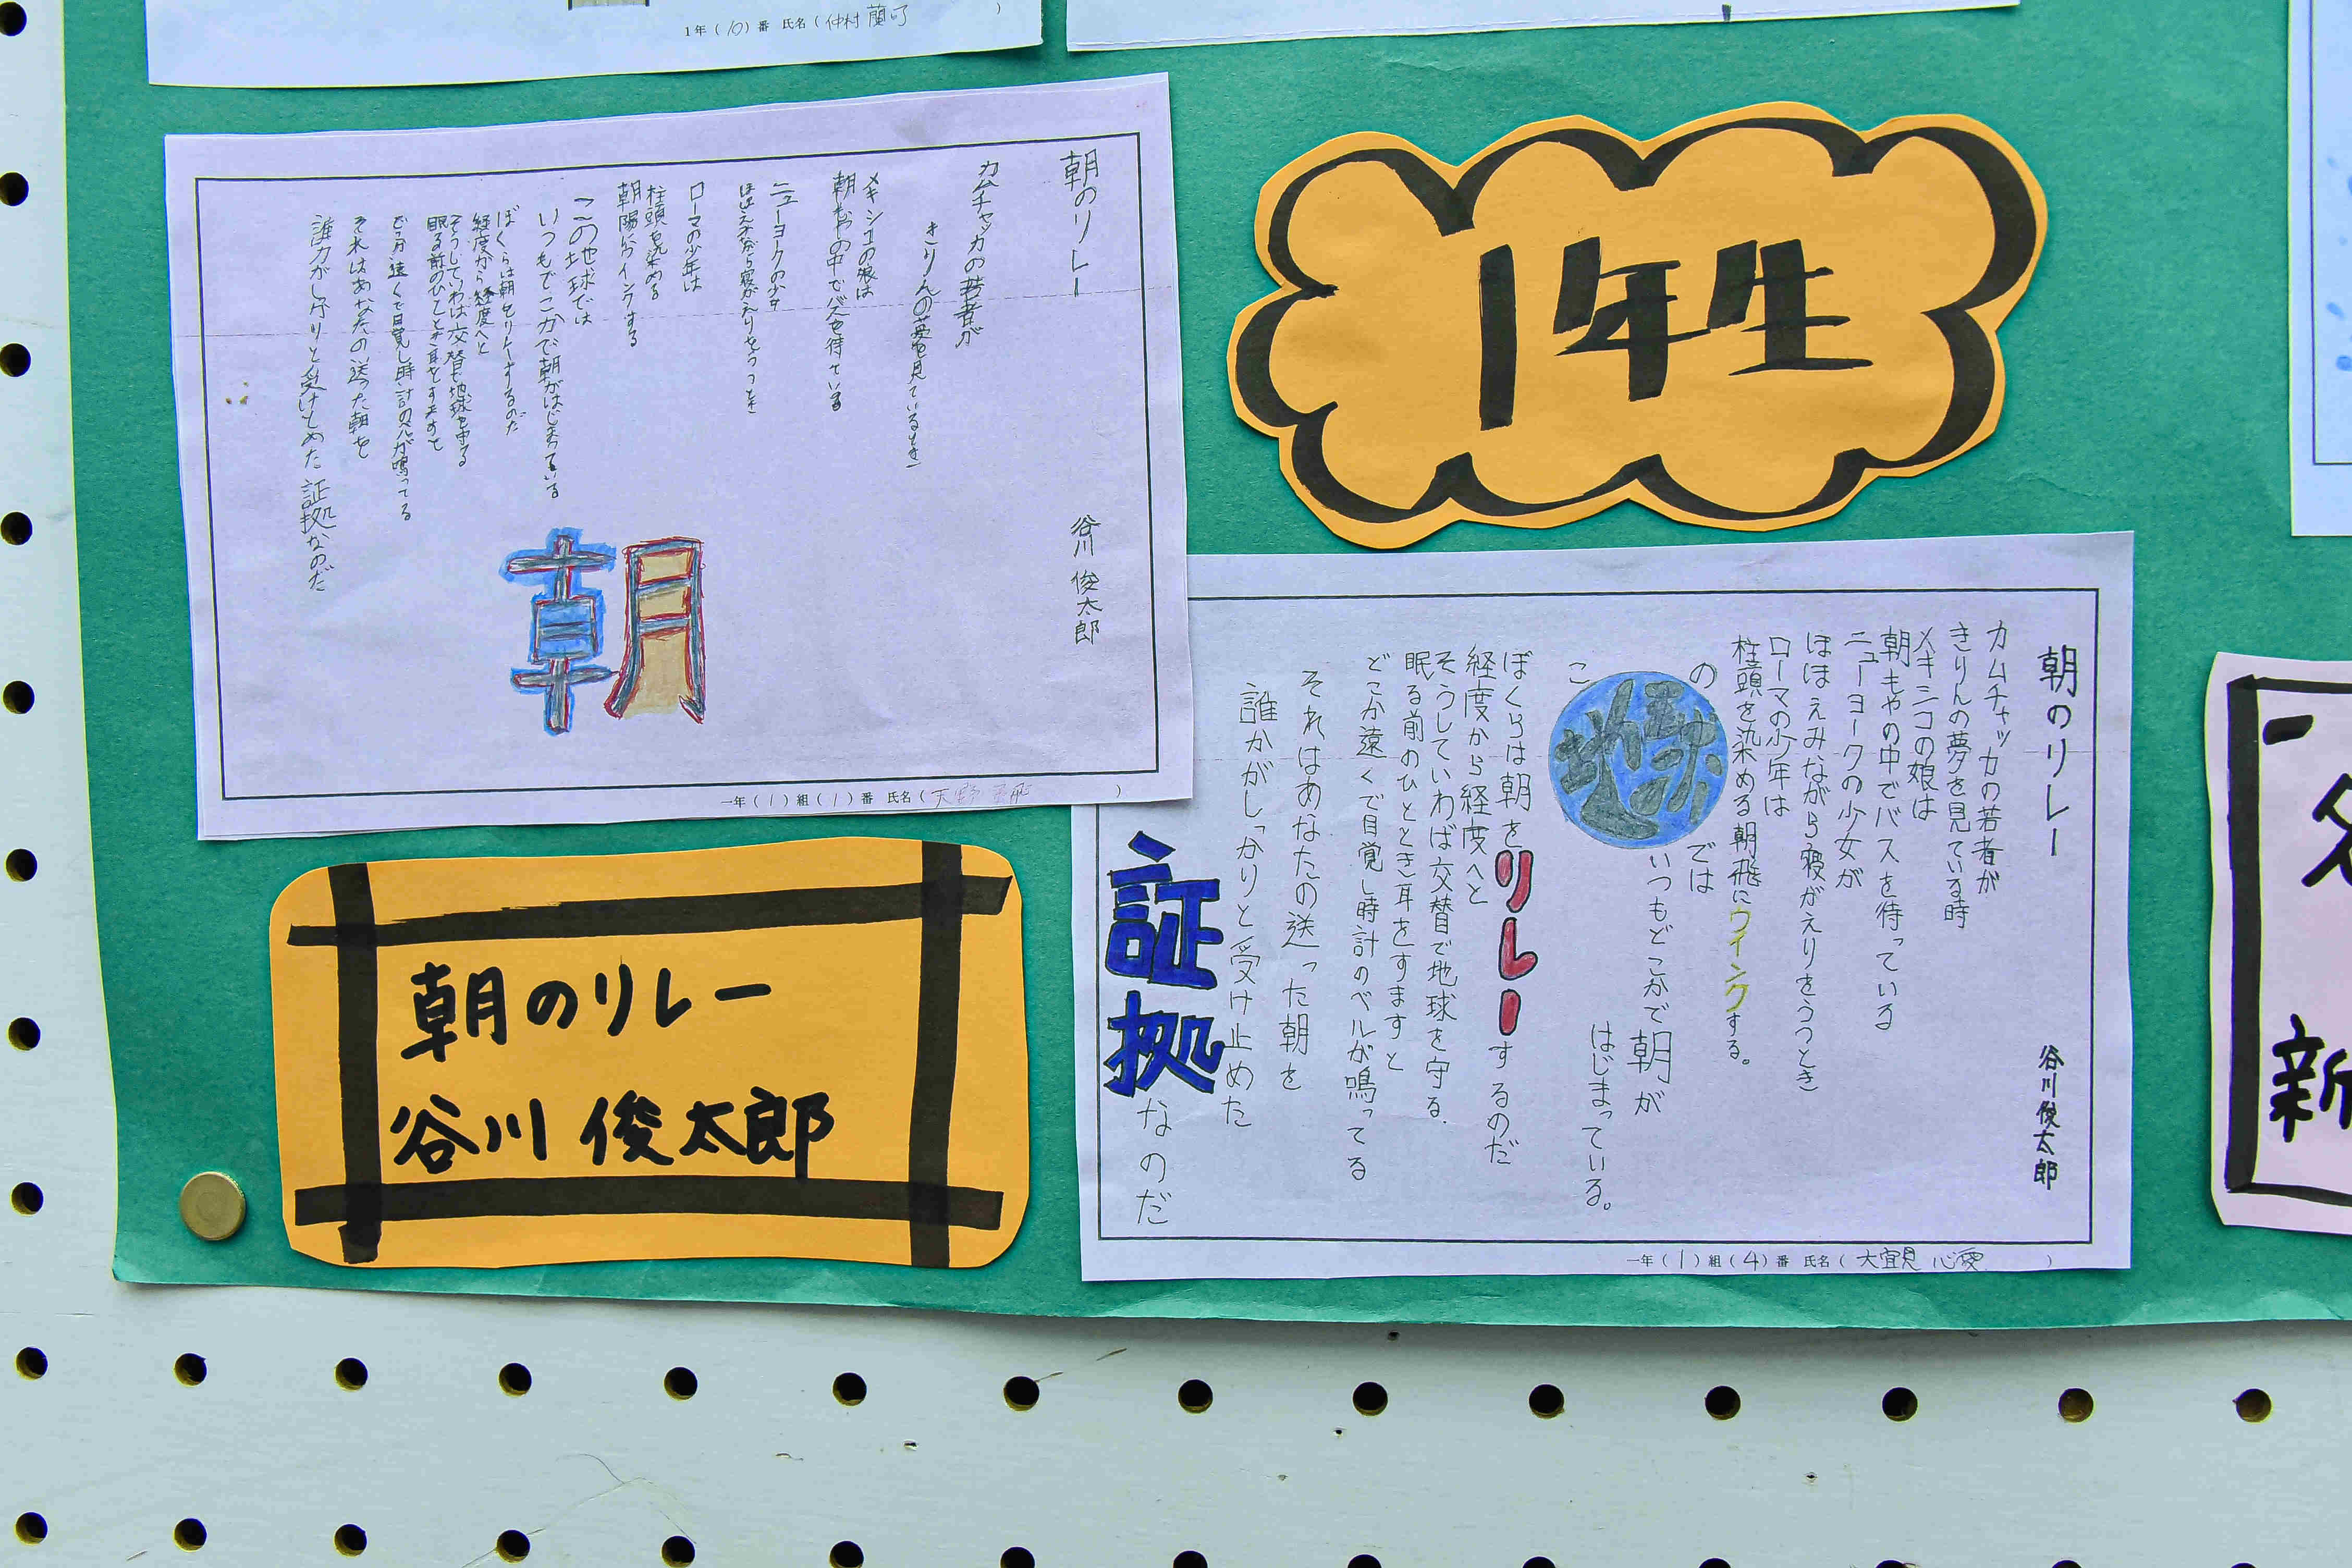 1年(10)番 氏名(仲村
朝のリレー
谷川 俊太郎
カムチャッカの若者が
きりんの夢を見ているとき
メキシコの娘は
朝もやの中でバスを待ている
ニューヨークの少女
ほほえみながら寝がえりをうつとき
ローマの少年は
柱頭を染める
朝陽にウインクする
この地球では
いつもどこかで朝がはじまっている
ぼくらは朝をリレーするのだ
経度から経度へと
そうしていわば交替で地球を守る
眠る前のひととき耳をすますと
どこか遠くで目覚し時計のベルが鳴ってる
それはあなたの送った朝を
誰かがしっかりと受けとめた証拠なのだ
朝
一年(1)組(1)番 氏名(天野
1年生
朝のリレー
谷川俊太郎
カムチャッカの若者が
きりんの夢を見ている時
メキシコの娘は
朝もやの中でバスを待っている
ニューヨークの少女が
ほほえみながら寝がえりをうつとき
ローマの少年は
柱頭を染める朝飛にウインクする。
この地球では
いつもどこかで朝が
はじまっている。
ぼくらは朝をリレーするのだ
経度から経度へと
そうしていわば交替で地球を守る.
眠る前のひととき耳をすますと
どこか遠くで目覚し時計のベルが鳴ってる
それはあなたの送った朝を
誰かがしっかりと受け止めた
証拠なのだ
一年(1)組(4)番 氏名(大宜見 心愛)
朝のリレー
谷川 俊太郎
新